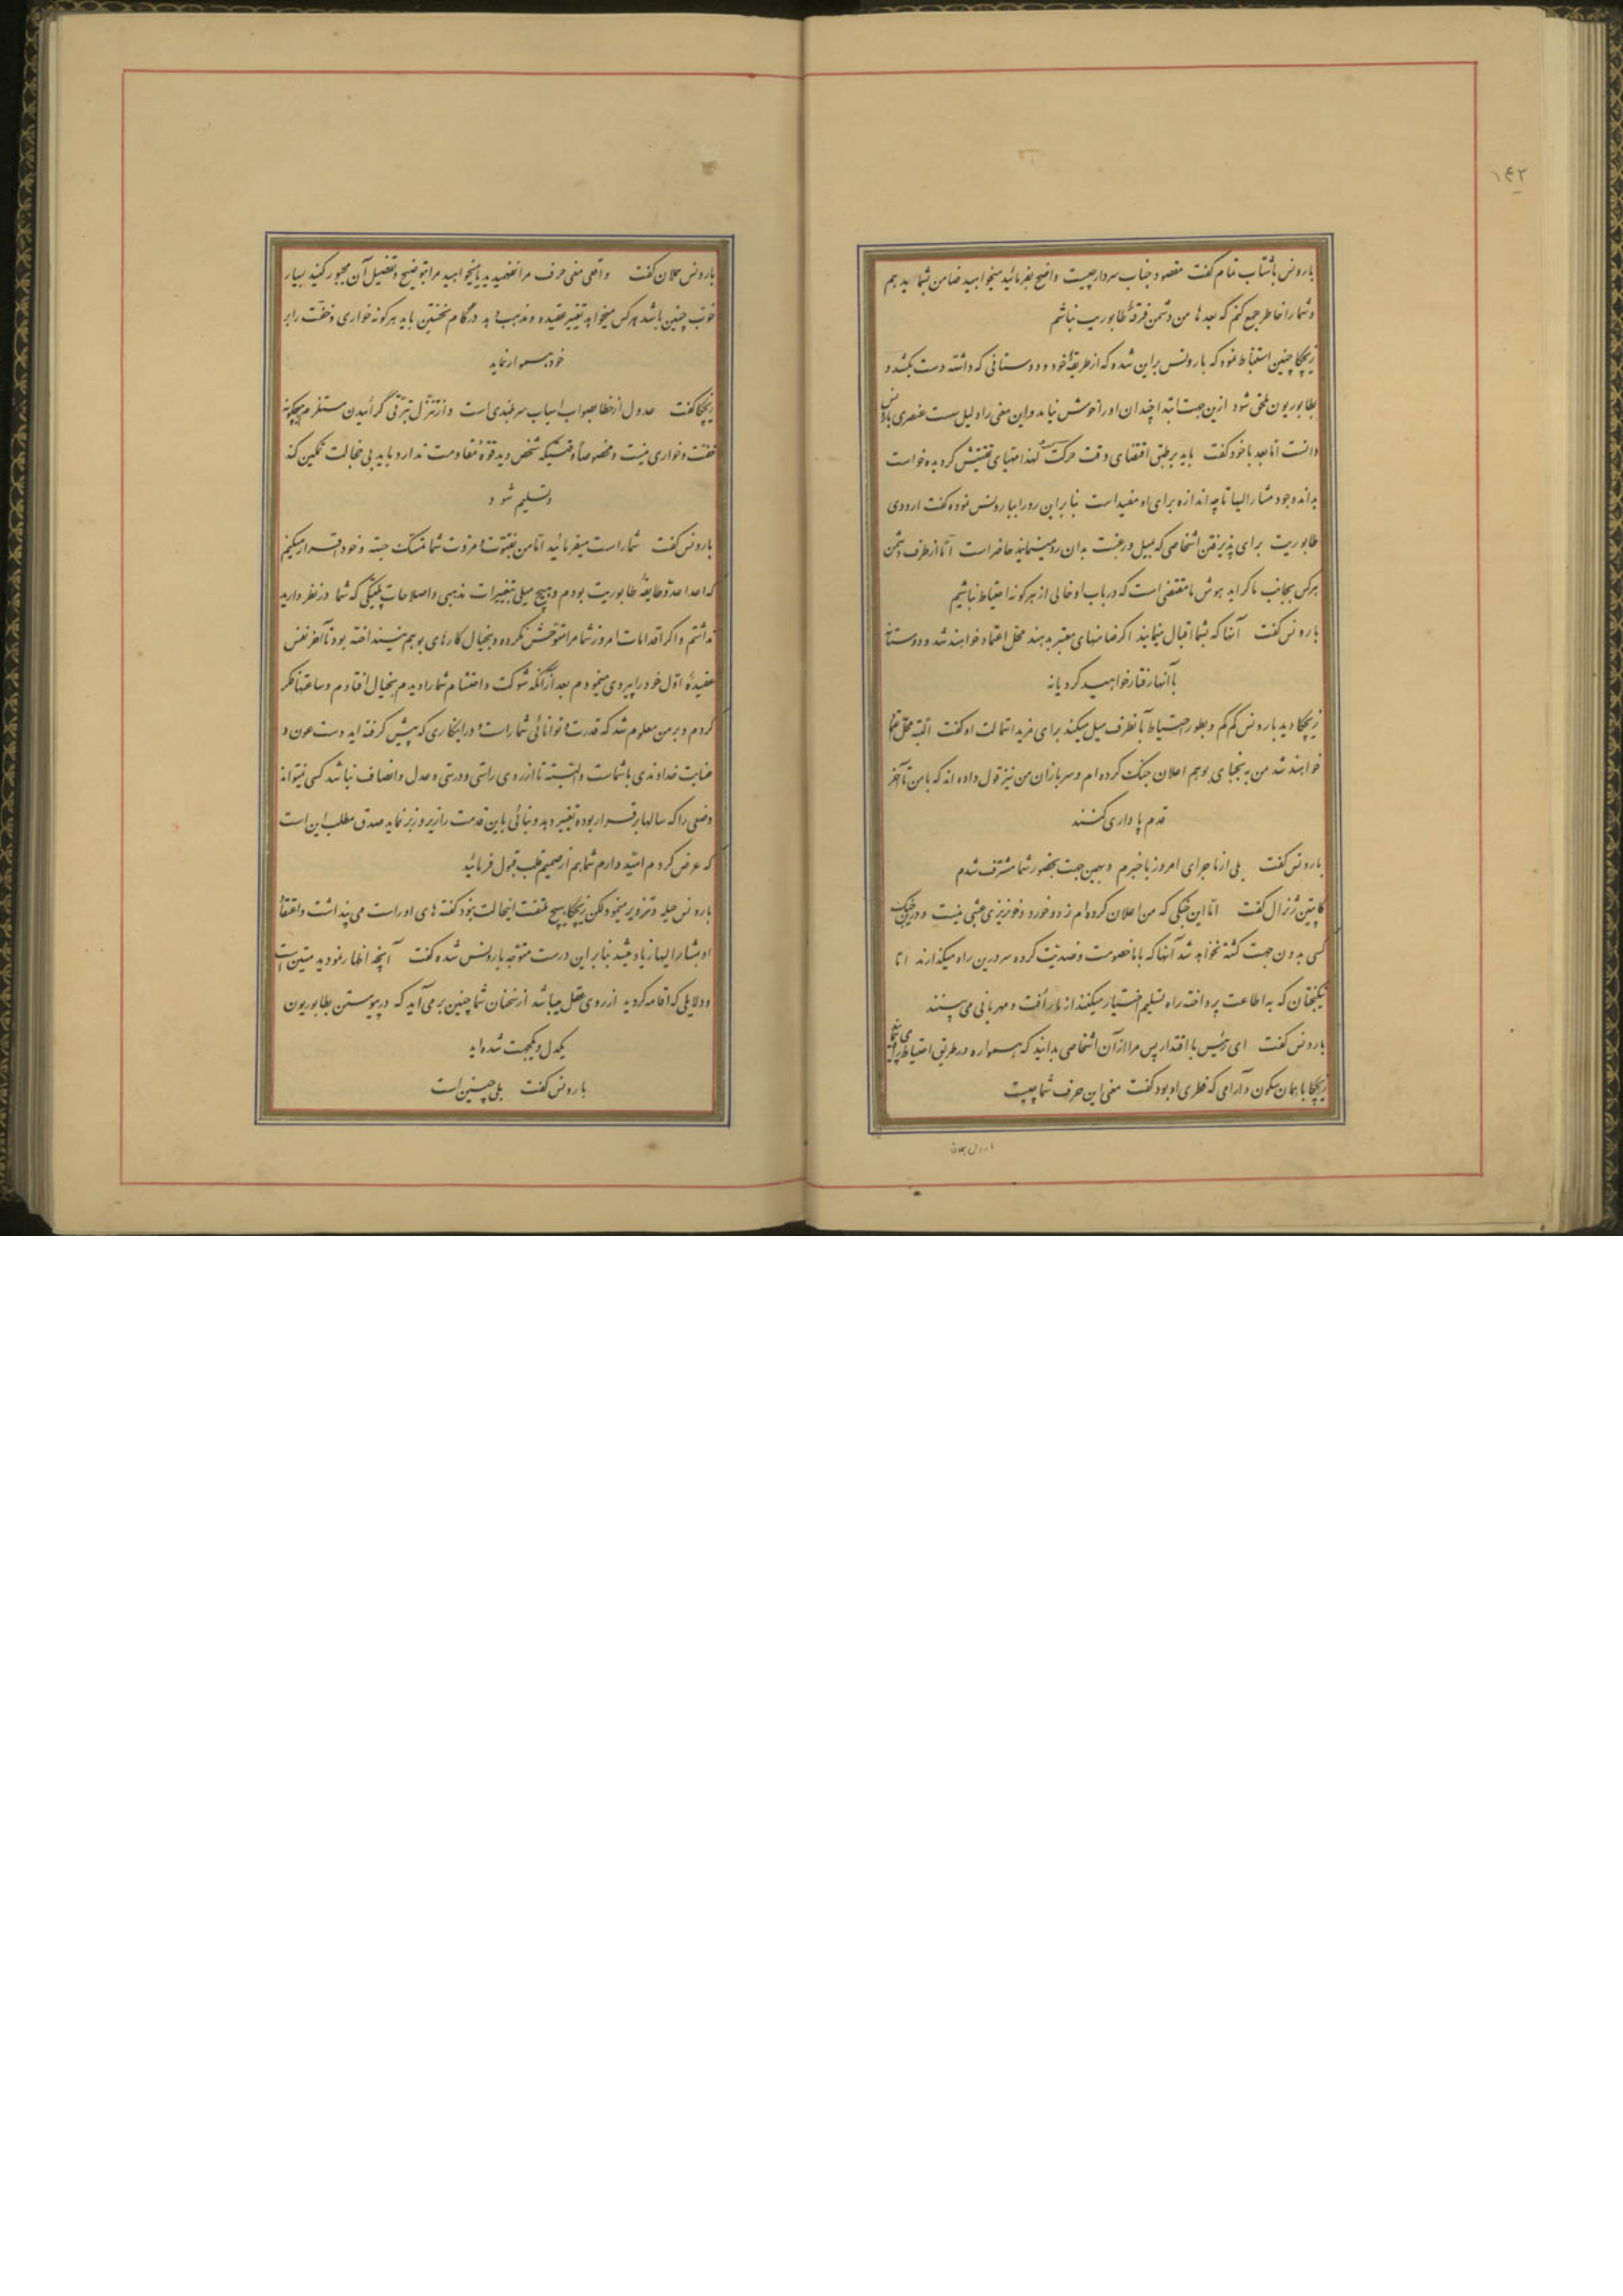 ۱۴۲
بارونس باشتاب تمام گفت مقصود جناب سردار چیست واضح بفرمائید میخواهید ضامن بشما بدهم
و شما را خاطر جمع کنم که بعدها من دشمن فرقهٔ طابوریت نباشم
زیچکا چنین استنباط نمود که بارونس براین شده که از طریقهٔ خود و دوستانی که داشته دست بکشد و
بطابوریون ملحق شود ازین جهت ابتدا چندان او را خوش نیامد و این معنی را دلیل سست عنصری بارونس
دانست اما بعد با خود گفت باید بر طبق اقتضای وقت حرکت لهذا مهیای تفتیش گردیده خواست
بداند وجود مشارالیها تا چه اندازه برای او مفید است بنابراین رو را ببارونس نموده گفت اردوی
طابوریت برای پذیرفتن اشخاصی که بمیل و رغبت بدان رو مینمایند حاضر است امّا از طرف دشمن
هرکس بجانب ما گراید هوش ما مقتضی است که درباب او خالی از هرگونه احتیاط نباشیم
بارونس گفت آنها که بشما اقبال مینمایند اگر ضامنهای معتبر بدهند محل اعتماد خواهند شد و دوستانه
با آنها رفتار خواهید کرد یا نه
زیچکا دید بارونس کم کم و بطور احتیاط بآنطرف میل میکند برای مزید استمالت او گفت البته محل اعتماد
خواهند شد من به نجبای بوهم اعلان جنگ کرده‌ام و سربازان من نیز قول داده‌اند که با من تا آخر
قدم پاداری کنند
بارونس گفت بلی از ماجرای امروز باخبرم و بهمین جهت بحضور شما مشرّف شدم
کاپیتن ژنرال گفت امّا این جنگی که من اعلان کرده‌ام زد و خورد و خونریزی عبثی نیست و درین جنگ
کسی بدون جهت کشته نخواهد شد آنها که با ما خصومت و ضدیّت کرده سر درین راه میگذارند امّا
نیکبختان که به اطاعت پرداخته راه تسلیم اختیار میکنند از ما رأفت و مهربانی می‌بینند
بارونس گفت ای رئیس با اقتدار پس مرا از آن اشخاصی بدانید که همواره در طریق احتیاط راه می
زیچکا با همان سکون و آرامی که فطری او بود گفت معنی این حرف شما چیست
بارونس همان گفت واقعی معنی حرف مرا نفهمیدید یا میخواهید مرا بتوضیح و تفصیل آن مجبور کنید بسیار
خوب چنین باشد هرکس میخواهد تغییر عقیده و مذهب دهد در گام نخستین باید هرگونه خواری و خفّت را بر
خود هموار نماید
زیچکا گفت عدول از خطا بصواب اسباب سربلندی است و از تنزّل بترقّی گرائیدن مستلزم هیچگونه
خفّت و خواری نیست و مخصوصاً وقتیکه شخص دید قوّهٔ مقاومت ندارد باید بی خجالت تمکین کند
و تسلیم شود
بارونس گفت شما راست میفرمائید امّا من بفتوّت و مروّت شما تمسّک جسته و خود اقرار میکنم
که اعدا عدوّ طایفهٔ طابوریت بودم و هیچ میلی بتغییرات مذهبی و اصلاحات پلتیکی که شما در نظر دارید
نداشتم و اگر اقدامات امروز شما مرا متوحّش نکرده و بخیال کارهای بوهم نینداخته بود تا آخر نفس
عقیدهٔ اوّل خود را پیروی مینمودم بعد از آنکه شوکت و احتشام شما را دیدم بخیال افتادم و ساعتها فکر
کردم و بر من معلوم شد که قدرت و توانائی شما راست و در اینکاری که پیش گرفته‌اید دست عون و
عنایت خداوندی با شماست و البته تا از روی راستی و درستی و عدل و انصاف نباشد کسی نمیتواند
وضعی را که سالها برقرار بوده تغییر دهد و بنائی باین قدمت را زیر و زبر نماید صدق مطلب این است
که عرض کردم امّید دارم شما هم از صمیم قلب قبول فرمائید
بارونس حیله و تزویر مینمود لکن زیچکا هیچ ملتفت اینحالت نبود گفته‌های او را راست می‌پنداشت و اعتقاد
او بمشارالیها زیاد میشد بنابراین درست متوجّه بارونس شده گفت آنچه اظهار نمودید متین است
و دلایلی که اقامه کردید از روی عقل میباشد از سخنان شما چنین برمی‌آید که در پیوستن بطابوریون
یکدل و یکجهت شده‌اید
بارونس گفت بلی چنین است